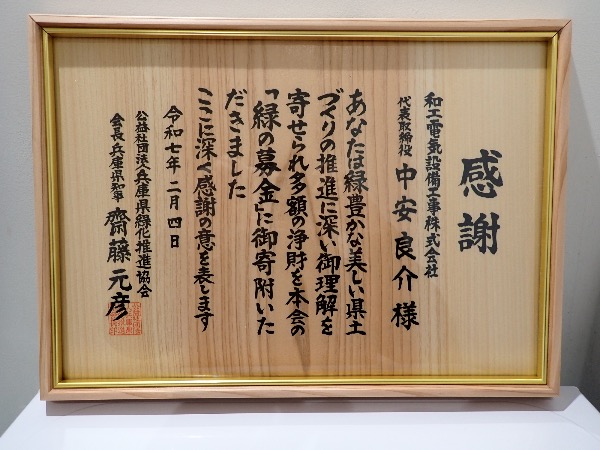 感謝
和工電気設備工事株式会社
代表取締役 中安良介様
あなたは緑豊かな美しい県土
づくりの推進に深い御理解を
寄せられ多額の浄財を本会の
「緑の募金」に御寄附いた
だきました
ここに深く感謝の意を表します
令和七年二月四日
公益社団法人兵庫県緑化推進協会
会長兵庫県知事 齋藤元彦